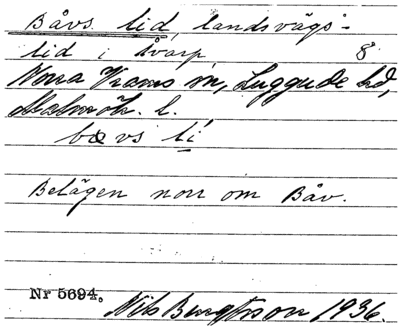 Båvs lid, landsvägs-
lid i Svarp 8
Norra Vrams sn, Luggude hd,
Malmöh. l.
bøvs li
Belägen norr om Båv.
Nr 5694.
Nils Bengtsson 1936.